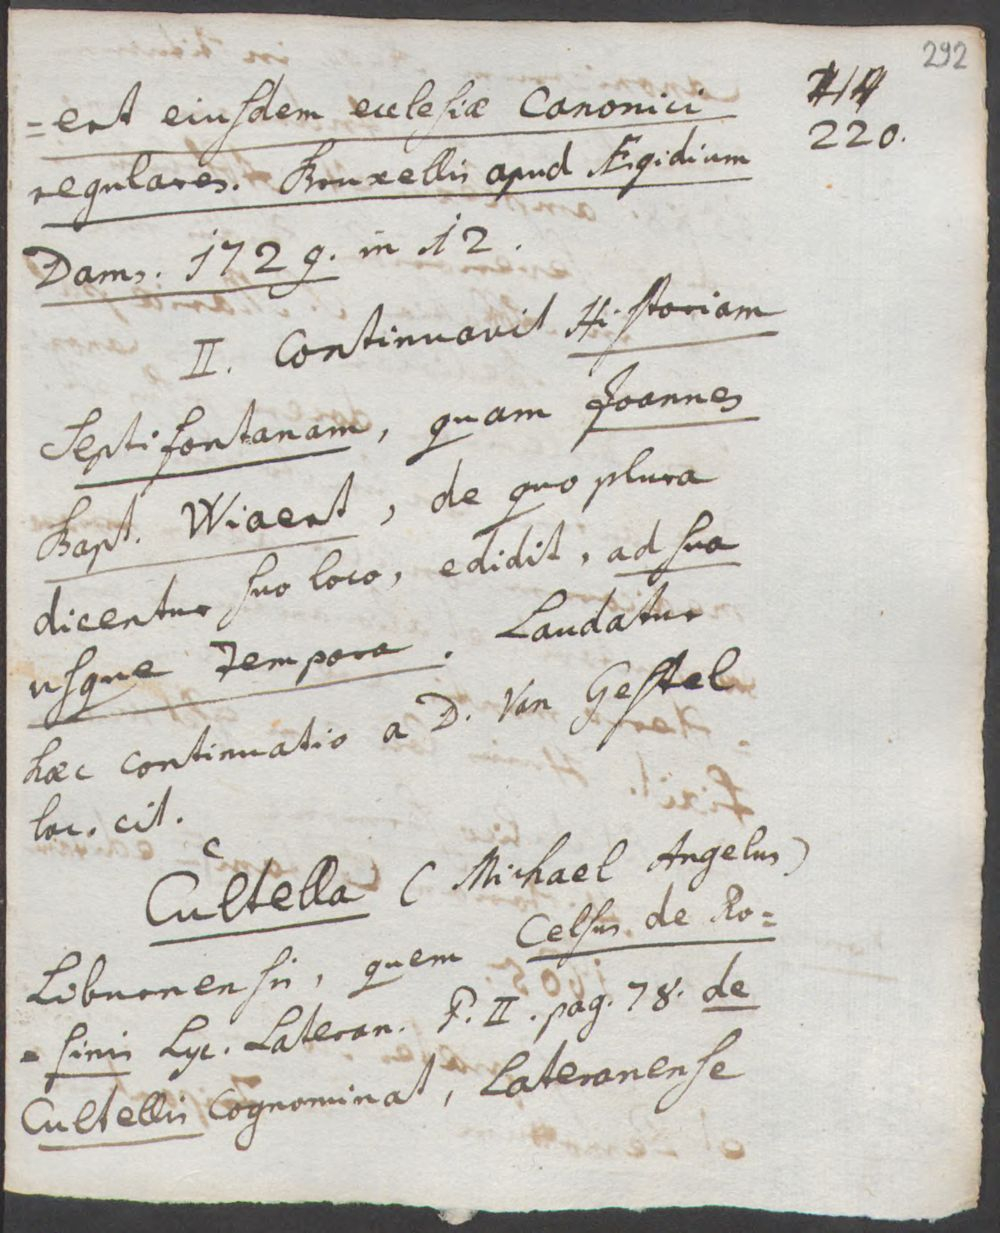 292
220.
=ert eiusdem ecclesiæ Canonici
regulares. Bruxellis apud Ægidium
Dams. 1729. in 12.
II. Continuavit Historiam
Septifontanam, quam Joannes
Bapt. Wiaert, de quo plura
dicentur suo loco, edidit, ad sua
usque tempora. Laudatur
hæc continuatio a D. Van Gestel
loc. cit.
c
Cultella (Michael Angelus)
Liburnensis, quem Celsus de Ro=
=sinis Lyc. Lateran. P. II. pag. 78. de
Cultellis Cognominat, Lateranense